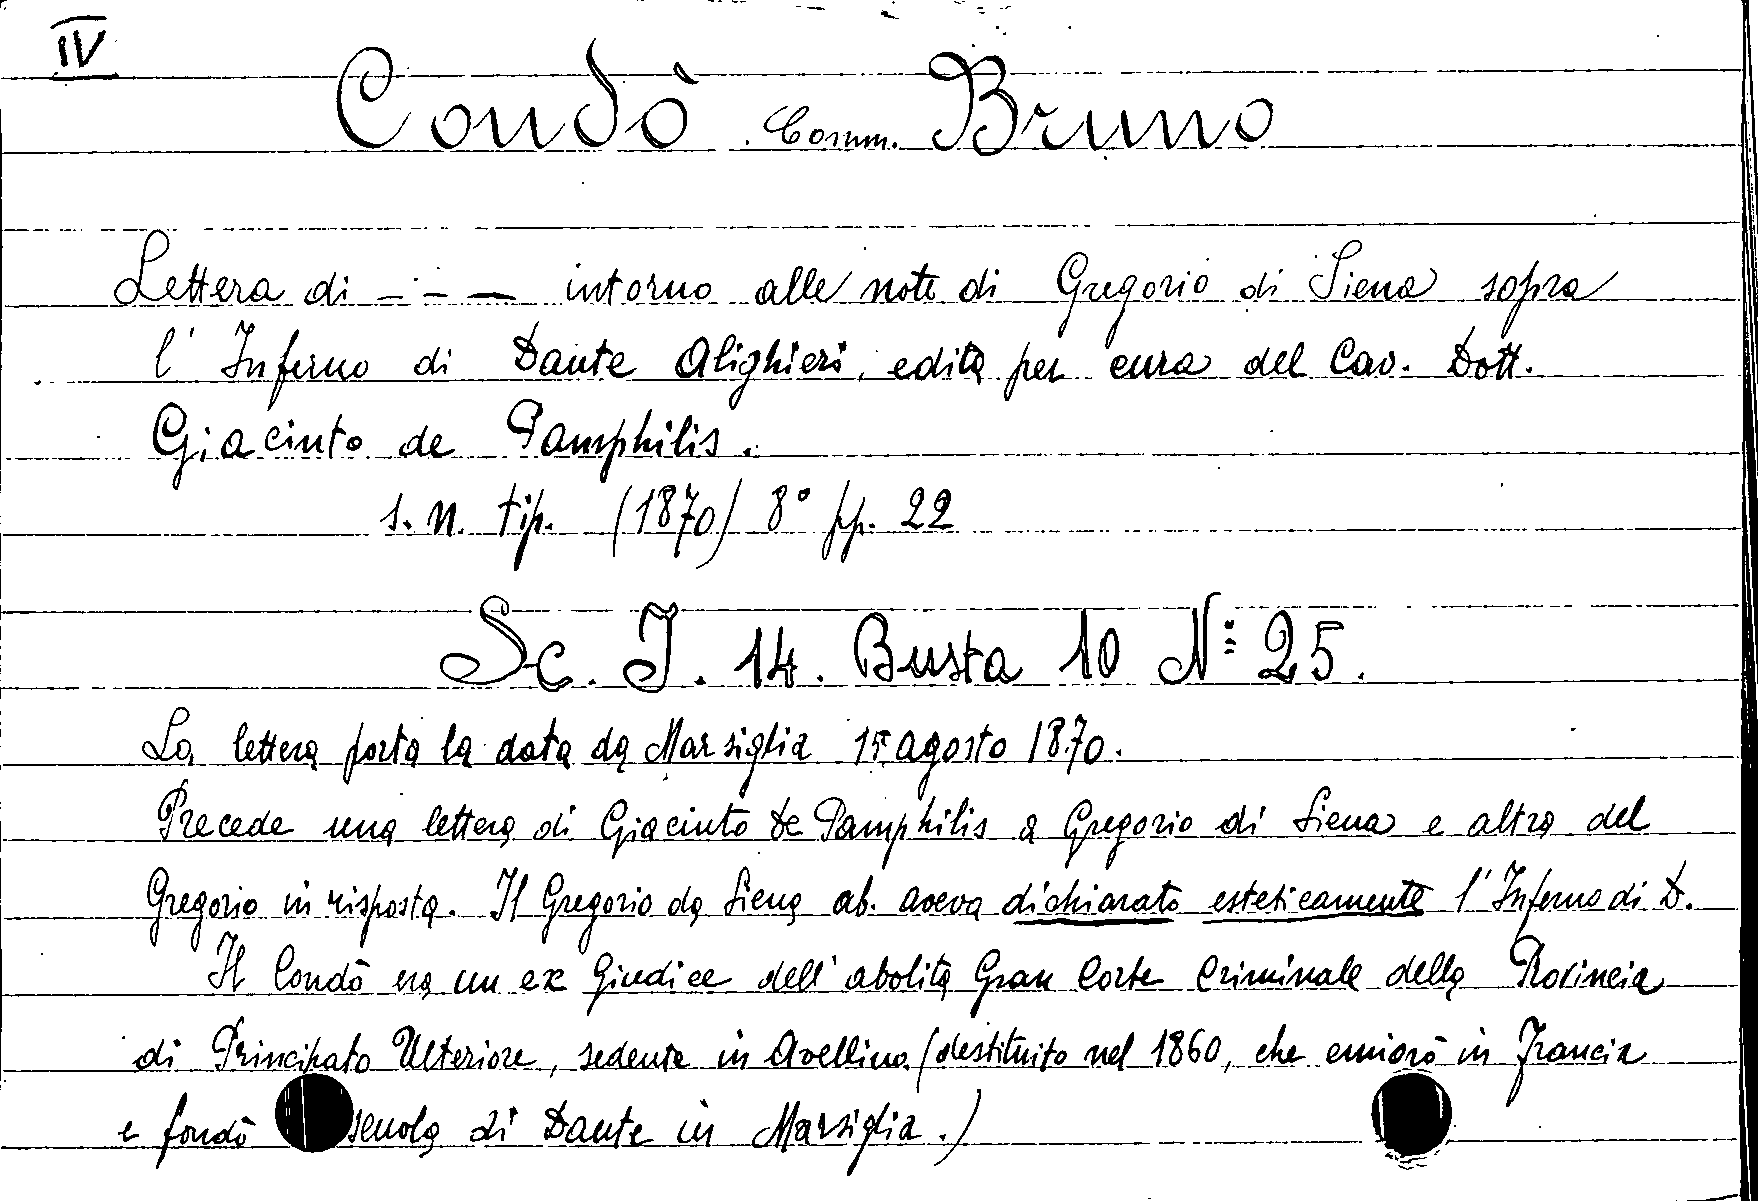 IV
Condò Comm. Bruno
Lettera di — - — intorno alle note di Gregorio di Siena sopra
l' Inferno di Dante Alighieri, edita per cura del Cav. Dott.
Giacinto de Pamphilis.
s. n. tip. (1870) 8° pp. 22
Sc. I. 14. Busta 10 N° 25.
La lettera porta la data da Marsiglia 15 agosto 1870.
Precede una lettera di Giacinto de Pamphilis a Gregorio di Siena e altra del
Gregorio in risposta. Il Gregorio da Siena ab. aveva dichiarato esteticamente l'Inferno di D.
Il Condò era un ex Giudice dell' abolita Gran Corte Criminale della Provincia
di Principato Ulteriore, sedente in Avellino (destituito nel 1860, che emigrò in Francia
e fondò scuola di Dante in Marsiglia.)